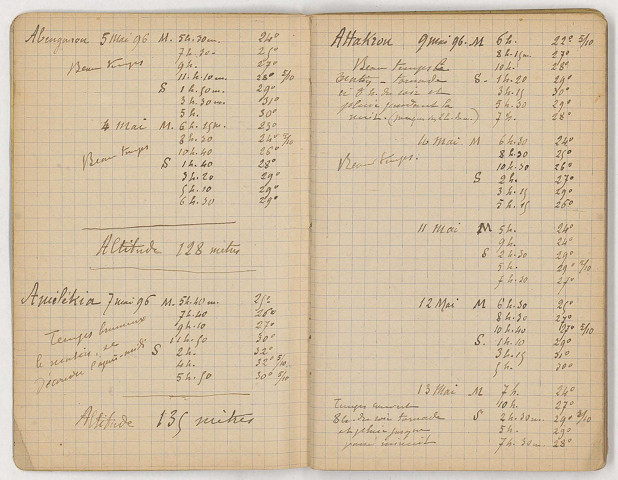 Abengaron 5 Mai 96 M. 5h.30m. 24°
7h.20 25°
Beau temps 9h. 27°
11h.10m 28° 5/10
S 1h.50m. 29°
3h.30m. 31°
5h. 30°
4 Mai M. 6h.15m. 23°
8h.30 24° 5/10
10h.40 26°
Beau temps S 1h.40 28°
3h.20 29°
5h.10 29°
6h.30 29°
Altitude 128 mètres
7 mai 96 M. 5h.40m. 25°
7h.40 26°
Temps brumeux 9h.10 27°
le matin, se 11h.50 30°
S 2h. 32°
4h. 32° 5/10
5h.50 30° 5/10
Altitude 135 mètres
Attakron 9 mai 96. M 6h. 22° 5/10
8h.15m. 27°
Beau temps le 10h. 28°
S. 1h.20 29°
3h.15 30°
pluie pendant la 5h.30 29°
nuit. 28°
10 Mai. M 6h.30 24°
8h.30 25°
Beau temps. 10h.30 26°
S 2h. 27°
3h.15 29°
5h.15 26°
11 Mai M 5h. 24°
9h. 24°
S 2h.30 29°
5h. 29°
7h.30 27°
12 Mai M 6h.30 25°
8h.30
10h.40 27° 5/10
S. 1h.10 29°
3h.15 31°
5h. 30°
13 Mai M 7h. 24°
10h. 27°
S 2h.30m. 29°
et pluie jusque 5h. 29°
7h.30m 28°